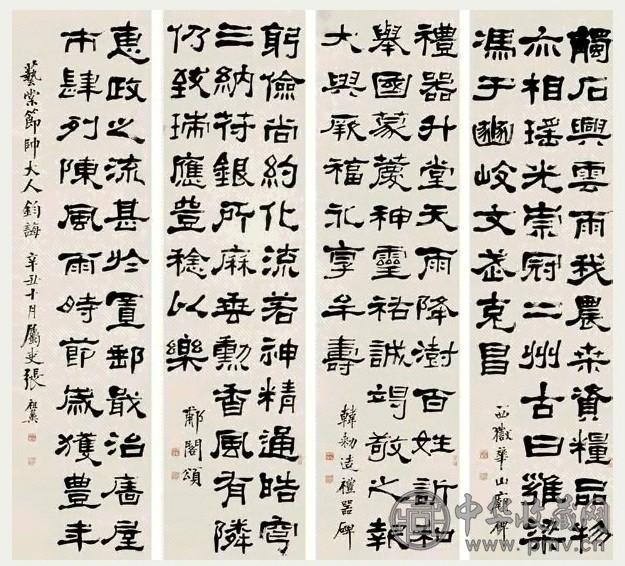 觸石興雲雨我農桒資糧品物
亦相瑤光崇冠二州古曰雍梁
馮于豳岐文武克昌
西嶽華山廟碑
禮器升堂天雨降澍百姓訢和
舉國蒙慶神靈祐誠竭敬之報
大與厥福永享牟壽
韓勑造禮器碑
躬儉尚約化流若神精通皓穹
三納苻銀所麻垂勳香風有隣
仍致瑞應豐稔以樂
郙閣頌
惠政之流甚於置郵戢治廧屋
市肆列陳風雨時節歲獲豐年
藝棠節帥大人鈞誨 辛丑十月屬吏張祖翼
中華收藏网